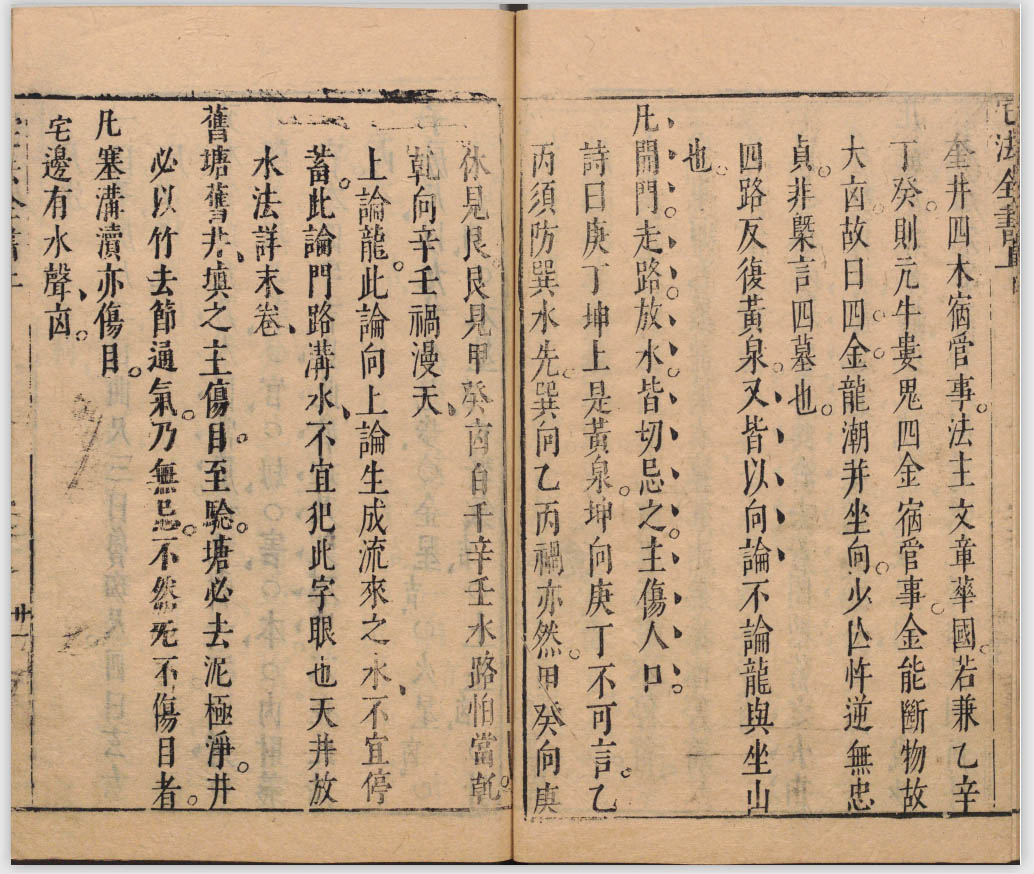 奎井四木宿管事法主文章華國若兼乙辛
丁癸則亢牛婁鬼四金宿管事金能斷物故
大凶故曰四金龍潮井坐向少凶忤逆無忠
貞非槩言四墓也
四路反復黃泉又皆以向論不論龍與坐山
也
凡開門走路放水皆切忌之主傷人口
詩曰庚丁坤上是黃泉坤向庚丁不可言乙
丙須防巽水先巽向乙丙禍亦然甲癸向庚
休見艮艮見甲癸凶百千辛壬水路怕當乾
乾向辛壬禍漫天
上論龍此論向上論生成流來之水不宜停
蓄此論門路溝水不宜犯此字眼也天井放
水法詳末卷
舊塘舊井填之主傷目至驗塘必去泥極淨井
必以竹去節通氣乃無忌不然旡不傷目者
凡塞溝瀆亦傷目
宅邊有水聲凶